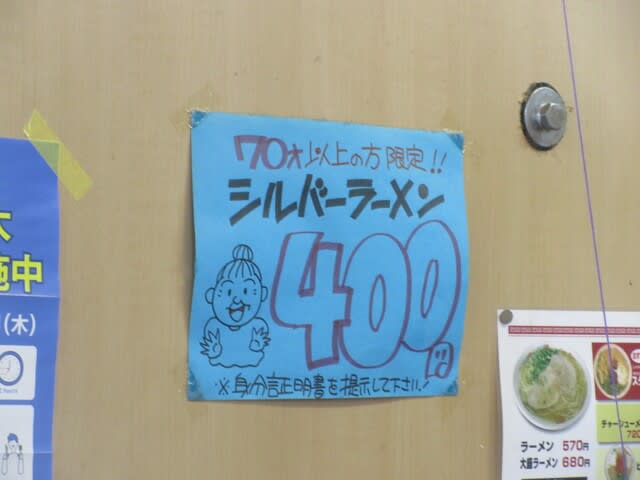 70才以上の方限定!!
シルバーラーメン
400円
※身分証明書を提示して下さい!
施中
(木)
ラーメン 570円
大盛ラーメン 680円
チャーシューメ
720